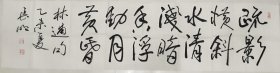 疏影
横斜
水清
淺暗
香浮
動月
黄昏
林逋
乙未夏